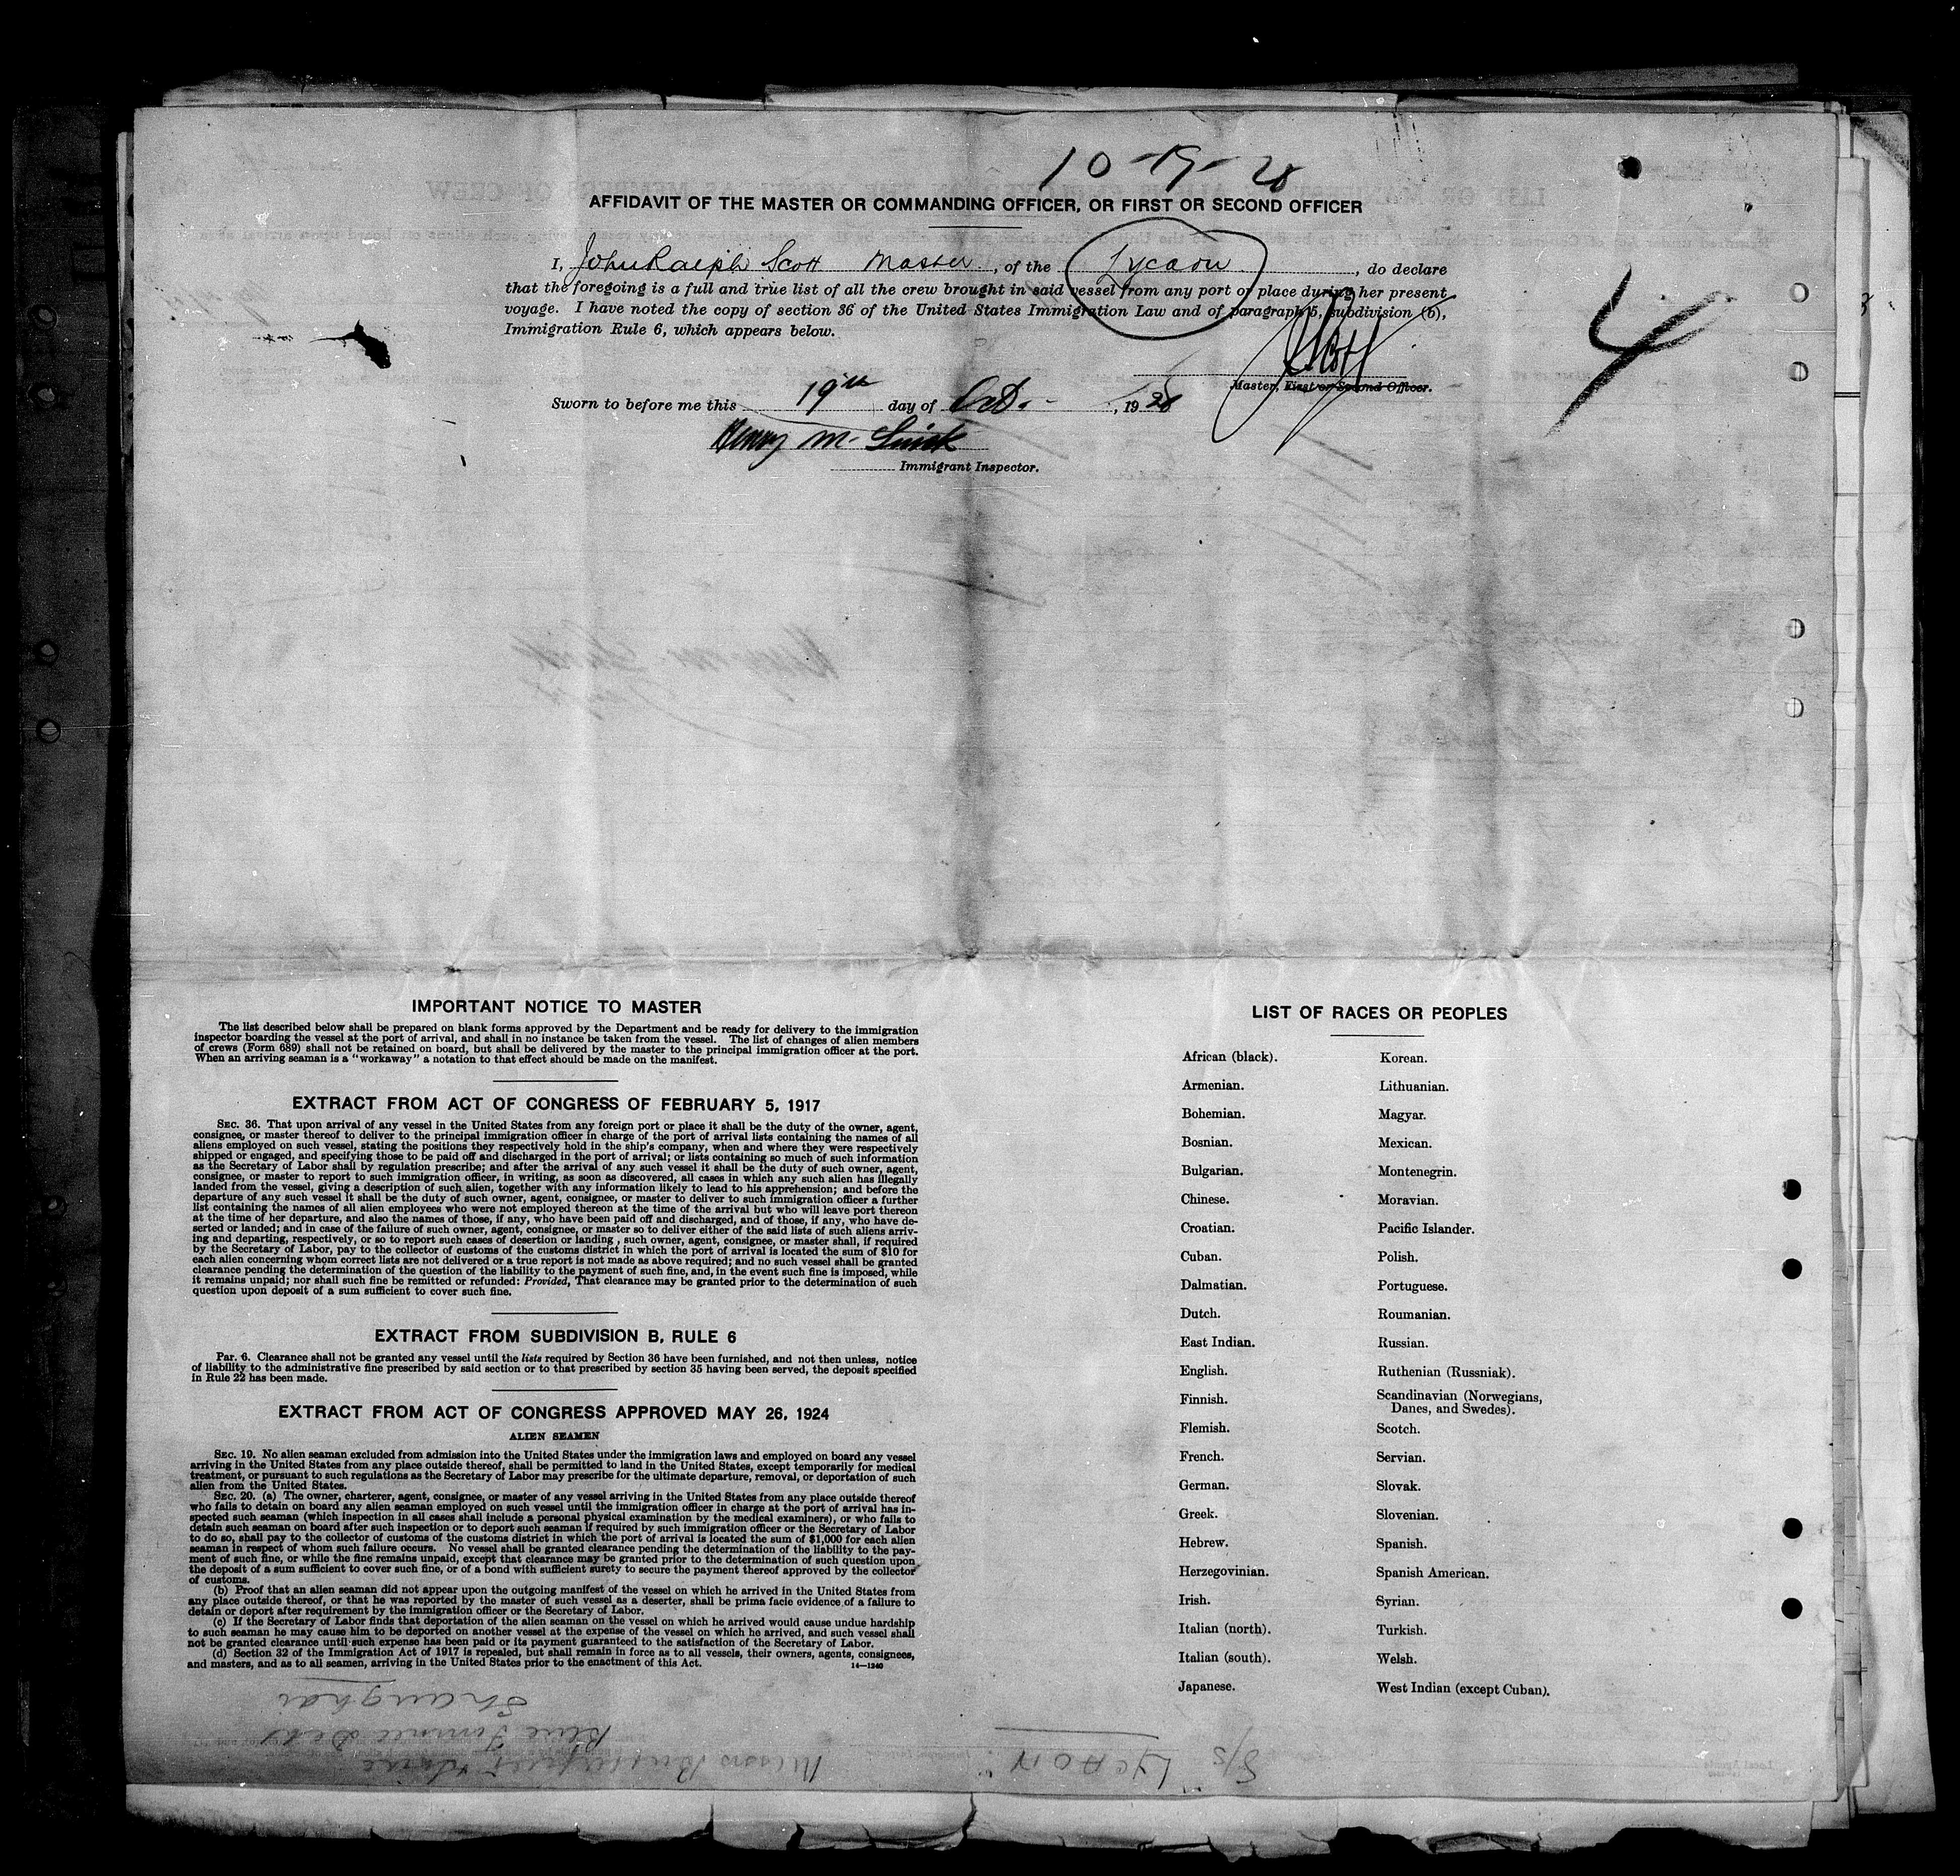 10-19-28
AFFIDAVIT OF THE MASTER OR COMMANDING OFFICER, OR FIRST OR SECOND OFFICER
I, John Ralph Scott Master, of the Lycaon, do declare
that the foregoing is a full and true list of all the crew brought in said vessel from any port or place during her present
voyage. I have noted the copy of section 36 of the United States Immigration Law and of paragraph 5, subdivision (b),
Immigration Rule 6, which appears below.
4
Scott
Master, First or Second Officer.
Sworn to before me this 19th day of Oct. , 1928
Henry M.
Immigrant Inspector.
IMPORTANT NOTICE TO MASTER
The list described below shall be prepared on blank forms approved by the Department and be ready for delivery to the immigration
inspector boarding the vessel at the port of arrival, and shall in no instance be taken from the vessel. The list of changes of alien members
of crews (Form 689) shall not be retained on board, but shall be delivered by the master to the principal immigration officer at the port.
When an arriving seaman is a "workaway" a notation to that effect should be made on the manifest.
EXTRACT FROM ACT OF CONGRESS OF FEBRUARY 5, 1917
SEC. 36. That upon arrival of any vessel in the United States from any foreign port or place it shall be the duty of the owner, agent,
consignee, or master thereof to deliver to the principal immigration officer in charge of the port of arrival lists containing the names of all
aliens employed on such vessel, stating the positions they respectively hold in the ship's company, when and where they were respectively
shipped or engaged, and specifying those to be paid off and discharged in the port of arrival; or lists containing so much of such information
as the Secretary of Labor shall by regulation prescribe; and after the arrival of any such vessel it shall be the duty of such owner, agent,
consignee, or master to report to such immigration officer, in writing, as soon as discovered, all cases in which any such alien has illegally
landed from the vessel, giving a description of such alien, together with any information likely to lead to his apprehension; and before the
departure of any such vessel it shall be the duty of such owner, agent, consignee, or master to deliver to such immigration officer a further
list containing the names of all alien employees who were not employed thereon at the time of the arrival but who will leave port thereon
at the time of her departure, and also the names of those, if any, who have been paid off and discharged, and of those, if any, who have de-
serted or landed; and in case of the failure of such owner, agent, consignee, or master so to deliver either of the said lists of such aliens arriv-
ing and departing, respectively, or so to report such cases of desertion or landing, such owner, agent, consignee, or master shall, if required
by the Secretary of Labor, pay to the collector of customs of the customs district in which the port of arrival is located the sum of $10 for
each alien concerning whom correct lists are not delivered or a true report is not made as above required; and no such vessel shall be granted
clearance pending the determination of the question of the liability to the payment of such fine, and, in the event such fine is imposed, while
it remains unpaid; nor shall such fine be remitted or refunded: Provided, That clearance may be granted prior to the determination of such
question upon deposit of a sum sufficient to cover such fine.
EXTRACT FROM SUBDIVISION B, RULE 6
Par. 6. Clearance shall not be granted any vessel until the lists required by Section 36 have been furnished, and not then unless, notice
of liability to the administrative fine prescribed by said section or to that prescribed by section 35 having been served, the deposit specified
in Rule 22 has been made.
EXTRACT FROM ACT OF CONGRESS APPROVED MAY 26, 1924
ALIEN SEAMEN
SEC. 19. No alien seaman excluded from admission into the United States under the immigration laws and employed on board any vessel
arriving in the United States from any place outside thereof, shall be permitted to land in the United States, except temporarily for medical
treatment, or pursuant to such regulations as the Secretary of Labor may prescribe for the ultimate departure, removal, or deportation of such
alien from the United States.
SEC. 20. (a) The owner, charterer, agent, consignee, or master of any vessel arriving in the United States from any place outside thereof
who fails to detain on board any alien seaman employed on such vessel until the immigration officer in charge at the port of arrival has in-
spected such seaman (which inspection in all cases shall include a personal physical examination by the medical examiners), or who fails to
detain such seaman on board after such inspection or to deport such seaman if required by such immigration officer or the Secretary of Labor
to do so, shall pay to the collector of customs of the customs district in which the port of arrival is located the sum of $1,000 for each alien
seaman in respect of whom such failure occurs. No vessel shall be granted clearance pending the determination of the liability to the pay-
ment of such fine, or while the fine remains unpaid, except that clearance may be granted prior to the determination of such question upon
the deposit of a sum sufficient to cover such fine, or of a bond with sufficient surety to secure the payment thereof approved by the collector
of customs.
(b) Proof that an alien seaman did not appear upon the outgoing manifest of the vessel on which he arrived in the United States from
any place outside thereof, or that he was reported by the master of such vessel as a deserter, shall be prima facie evidence of a failure to
detain or deport after requirement by the immigration officer or the Secretary of Labor.
(c) If the Secretary of Labor finds that deportation of the alien seaman on the vessel on which he arrived would cause undue hardship
to such seaman he may cause him to be deported on another vessel at the expense of the vessel on which he arrived, and such vessel shall
not be granted clearance until such expense has been paid or its payment guaranteed to the satisfaction of the Secretary of Labor.
(d) Section 32 of the Immigration Act of 1917 is repealed, but shall remain in force as to all vessels, their owners, agents, consignees,
and masters, and as to all seamen, arriving in the United States prior to the enactment of this Act.
14—1240
LIST OF RACES OR PEOPLES
African (black).
Armenian.
Bohemian.
Bosnian.
Bulgarian.
Chinese.
Croatian.
Cuban.
Dalmatian.
Dutch.
East Indian.
English.
Finnish.
Flemish.
French.
German.
Greek.
Hebrew.
Herzegovinian.
Irish.
Italian (north).
Italian (south).
Japanese.
Korean.
Lithuanian.
Magyar.
Mexican.
Montenegrin.
Moravian.
Pacific Islander.
Polish.
Portuguese.
Roumanian.
Russian.
Ruthenian (Russniak).
Scandinavian (Norwegians,
Danes, and Swedes).
Scotch.
Servian.
Slovak.
Slovenian.
Spanish.
Spanish American.
Syrian.
Turkish.
Welsh.
West Indian (except Cuban).
S/S "LYCAON"
Messrs Butterfield & Swire
Blue Funnel Dept
Shanghai